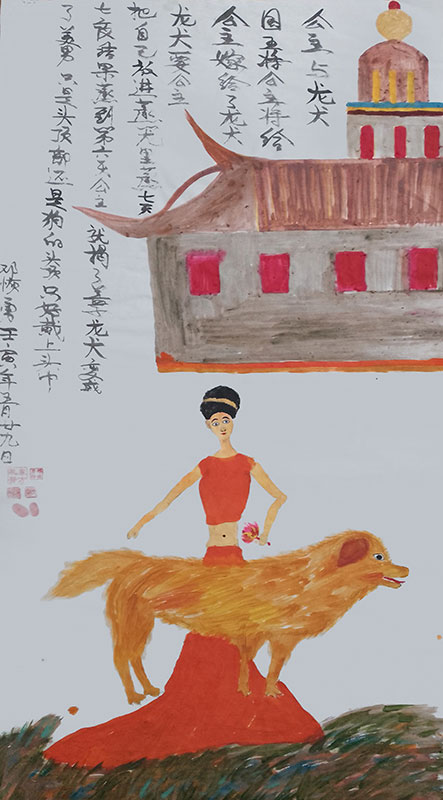 公主与龙犬
国王将公主将给
公主嫁给了龙犬
龙犬要公主
把自己放进蒸龙里蒸七天
七夜结果蒸到第六天公主就揭了盖龙犬变成
了美男只是头顶部还是狗的头只好戴上头巾
邓勇壬寅年五月廿九日